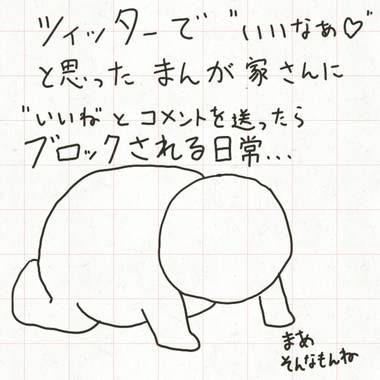 ツイッターで "いいなぁ♡"
と思った まんが家さんに
"いいね"とコメントを送ったら
ブロックされる日常...
まあ
そんなもんね